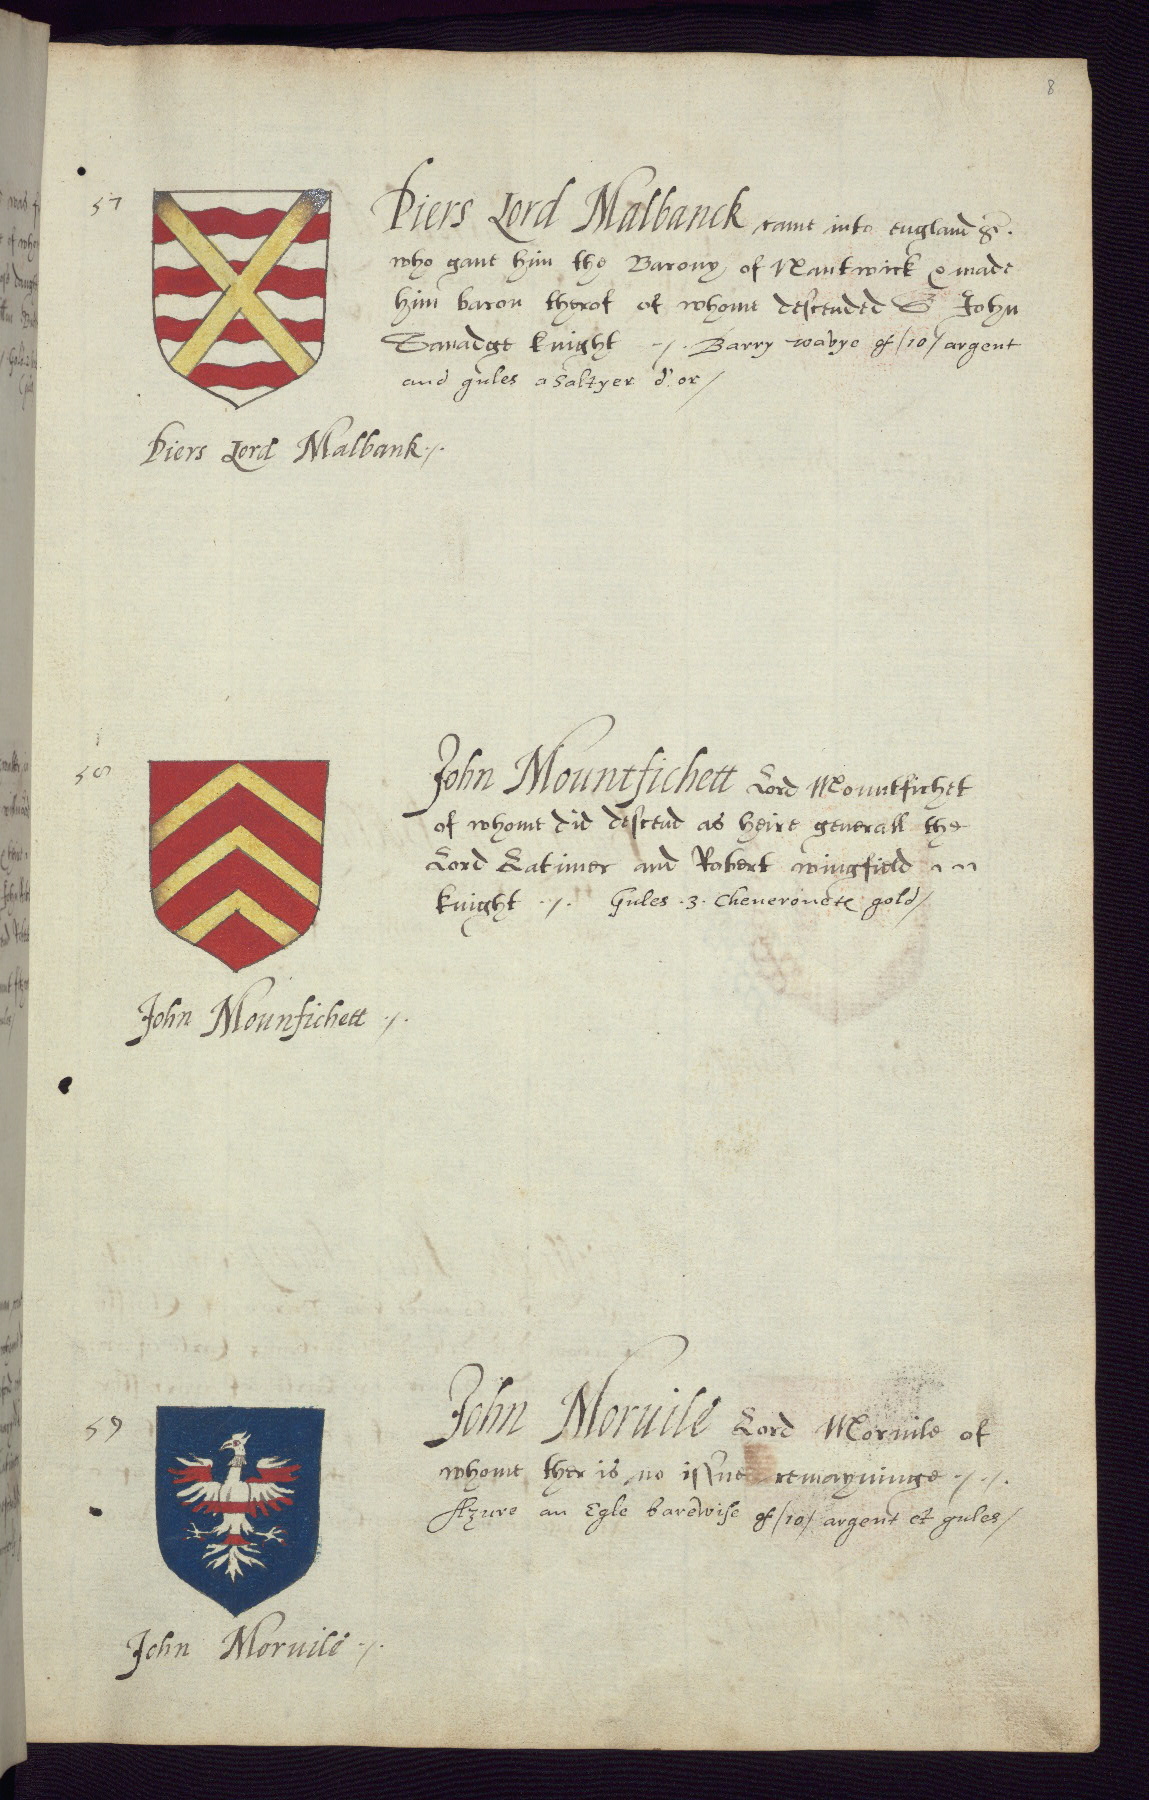 8
57
Piers Lord Malbanck came into england &c.
who gaue him the Barony of Nantwick & made
him baron therof of whome descended Sr John
Sauadge knight -/. Barry wavye of /10/ argent
and gules a Saltyer d'or/
Piers Lord Malbank ./.
58
John Mountfichett Lord Mountfichet
of whome did descend as heire generall the
Lord Latimer and Robert wingfield
knight ./. Gules .3. Cheueronete gold/
John Mounfichett ./.
59
John Moruile Lord Moruile of
whome ther is no issue remayninge ./ ./.
Azure an Egle barewise of /10/ argent et gules/
John Moruile ./.